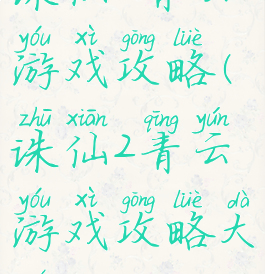 yóu xì gōng lüè
游戏攻略(
zhū xiān qīng yún
诛仙2青云
yóu xì gōng lüè dà
游戏攻略大